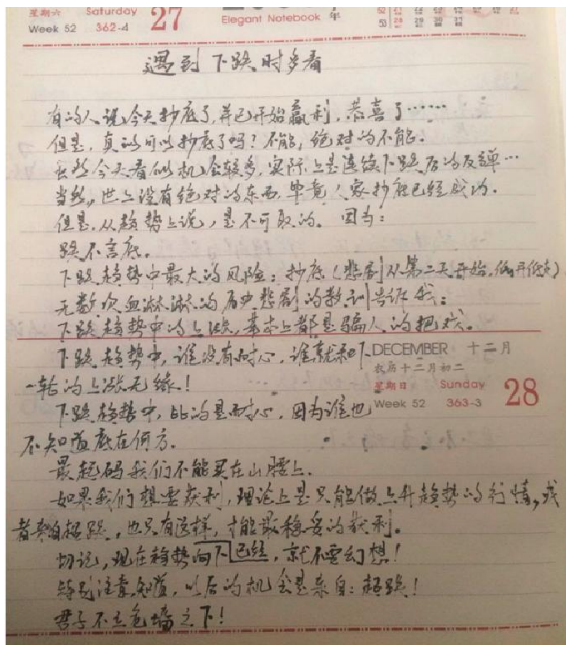 星期六 Saturday 27
Week 52 362-4
Elegant Notebook 年
遇到下跌时多看
有的人说今天抄底了,并已开始赢利,恭喜了……
但是,真的可以抄底了吗?不能,绝对的不能.
虽然今天看似机会较多,实际上是连续下跌后的反弹…
当然,世上没有绝对的东西,毕竟人家抄底已经成功.
但是.从趋势上说,是不可取的。因为:
跌不言底.
下跌趋势中最大的风险:抄底(悲剧从第二天开始,低开低走)
无数次血淋淋的庄中悲剧的教训告诉我:
下跌趋势中的上涨,基本上都是骗人的把戏。
下跌趋势中,谁没有耐心,谁就和下
一轮的上涨无缘!
DECEMBER 十二月
农历十二月初二
星期日 Sunday 28
Week 52 363-3
下跌趋势中,比的是耐心,因为谁也
不知道底在何方.
最起码我们不能买在山腰上.
如果我们想要获利,理论上是只能做上升趋势的行情,或
者来自超跌,也只有这样,才能最稳妥的获利。
切记,现在趋势向下已经,就不要幻想!
特别注意知道,以后的机会是来自:超跌!
君子不立危墙之下!